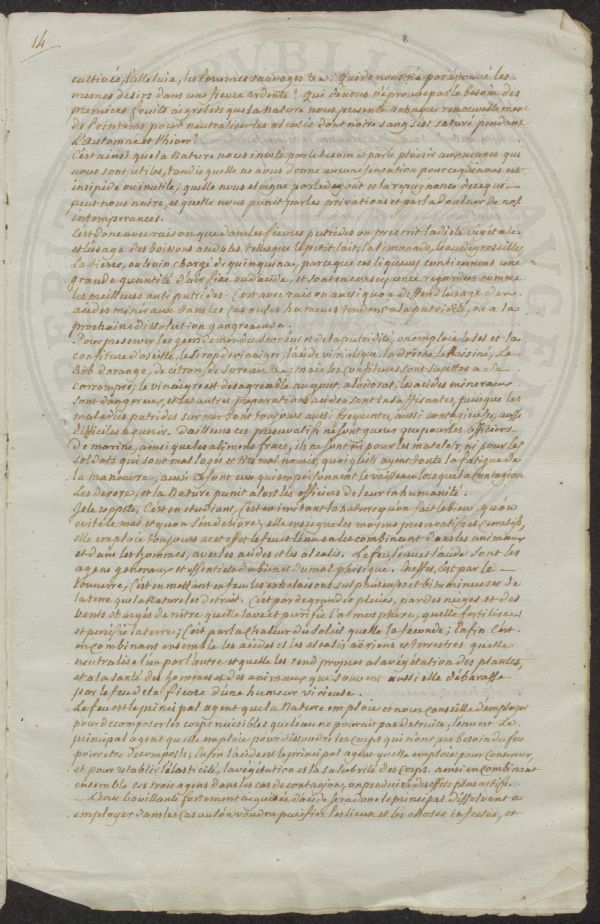 14
8
cultivée, l'alleluia, les Pommes sauvages &a. Qui de nous n'a pas éprouvé les
mesmes desirs dans une fievre ardente! Qui de nous n'éprouve pas le besoin des
premiers fruits aigrelets que la Nature nous presente à chaque renouvellement
de Printems pour neutraliser les alcalis dont notre sang s'est saturé pendant
L'Automne et l'hiver?
C'est ainsi que la Nature nous invite par le besoin et par le plaisir aux usages qui
nous sont utiles, tandis qu'elle ne nous donne aucune sensation pour ce qui nous est
insipide ou inutile; qu'elle nous eloigne par le degout et la repugnance de ce qui
peut nous nuire, et qu'elle nous punit par les privations et par la douleur de nos
intemperances.
C'est donc avec raison que dans les fievres putrides on prescrit la diete vegetale
et l'usage des boissons acidules telles que le petit lait, la limonade, l'eau de groseille,
la bierre, ou le vin chargé de quinquina, parce que ces liqueurs contiennent une
grande quantité d'air fixe ou d'acide, et sont en consequence regardées comme
les meilleurs anti putrides. C'est avec raison aussi qu'on a deffendu l'usage des
acides mineraux dans les cas ou les humeurs tendent à la putridité, ou à la
prochaine dissolution gangreneuse.
Pour preserver les gens de mer du scorbut et de la putridité, on emploie le sel et la
confiture d'oseille, le sirop de vinaigre, l'acide vitriolique, la drêche, le Raisiné, le
Rob d'orange, de citron, de sureau &a; mais les confitures sont sujettes a se
corrompre, le vinaigre est desagreable au gout, a l'odorat, les acides mineraux
sont dangereux, et les autres preparations acides sont insuffisantes, puisque les
maladies putrides sur mer sont toujours aussi frequentes, aussi contagieuses, aussi
difficiles a guerir. D'ailleurs ces preservatifs ne sont gueres que pour les officiers
de marine, ainsi que les alimens frais, ils ne sont ni pour les matelots, ni pour les
soldats qui sont mal logés et tres mal nourris, quoiqu'ils ayent toute la fatigue de
la manœuvre, aussi ce sont eux qui empoisonnent le vaisseau lorsque la contagion
les devore, et la Nature punit alors les officiers de leur inhumanité.
Je le repete, c'est en etudiant, c'est en imitant la nature qu'on fait le bien, qu'on
evite le mal et qu'on s'en delivre, elle enseigne les moyens preservatifs et curatifs,
elle emploie toujours a cet effet le feu et l'eau en les combinant dans les animaux
et dans les hommes, avec les acides et les alcalis. Le feu, l'eau et l'acide sont les
agens generaux et essentiels du bien et du mal phisique. En effet, c'est par le
tonnerre, c'est en mettant en feu les exhalaisons sulphureuses et bitumineuses de
la terre que la Nature les detruit. C'est par de grandes pluies, par des neiges et des
vents chargés de nitre qu'elle lave et purifie l'atmosphere, qu'elle fertilise
et purifie la terre; c'est par la chaleur du soleil qu'elle la feconde; Enfin c'est
en combinant ensemble les acides et les alcalis aëriens et terrestres qu'elle
neutralise l'un par l'autre et qu'elle les rend propres a la végétation des plantes,
et a la santé des hommes et des animaux que souvent aussi elle débarasse
par le feu de la fievre d'une humeur vicieuse.
Le feu est le principal agent que la Nature emploie et nous conseille d'employer
pour decomposer les corps nuisibles que l'eau ne pourrait pas detruire, l'eau est le
principal agent qu'elle emploie pour dissoudre les corps qui n'ont pas besoin du feu
pour etre decomposés; Enfin l'acide est le principal agent qu'elle emploie pour conserver
et pour retablir l'elasticité, la végétation et la salubrité des corps. ainsi en combinant
ensemble ces trois agens dans les cas de contagion, on produira des effets plus actifs.
L'eau bouillante fortement aiguisée d'acide sera donc le principal dissolvant a
employer dans les cas ou l'on voudra purifier les lieux et les choses infectes, et